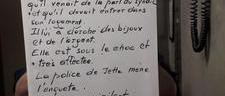 qu'il venait de la part du syndic
et qu'il devait entrer dans
son logement.
Il lui a dérobé des bijoux
et de l'argent.
Elle est sous le choc et
très affectée.
La police de Jette mène
l'enquête.